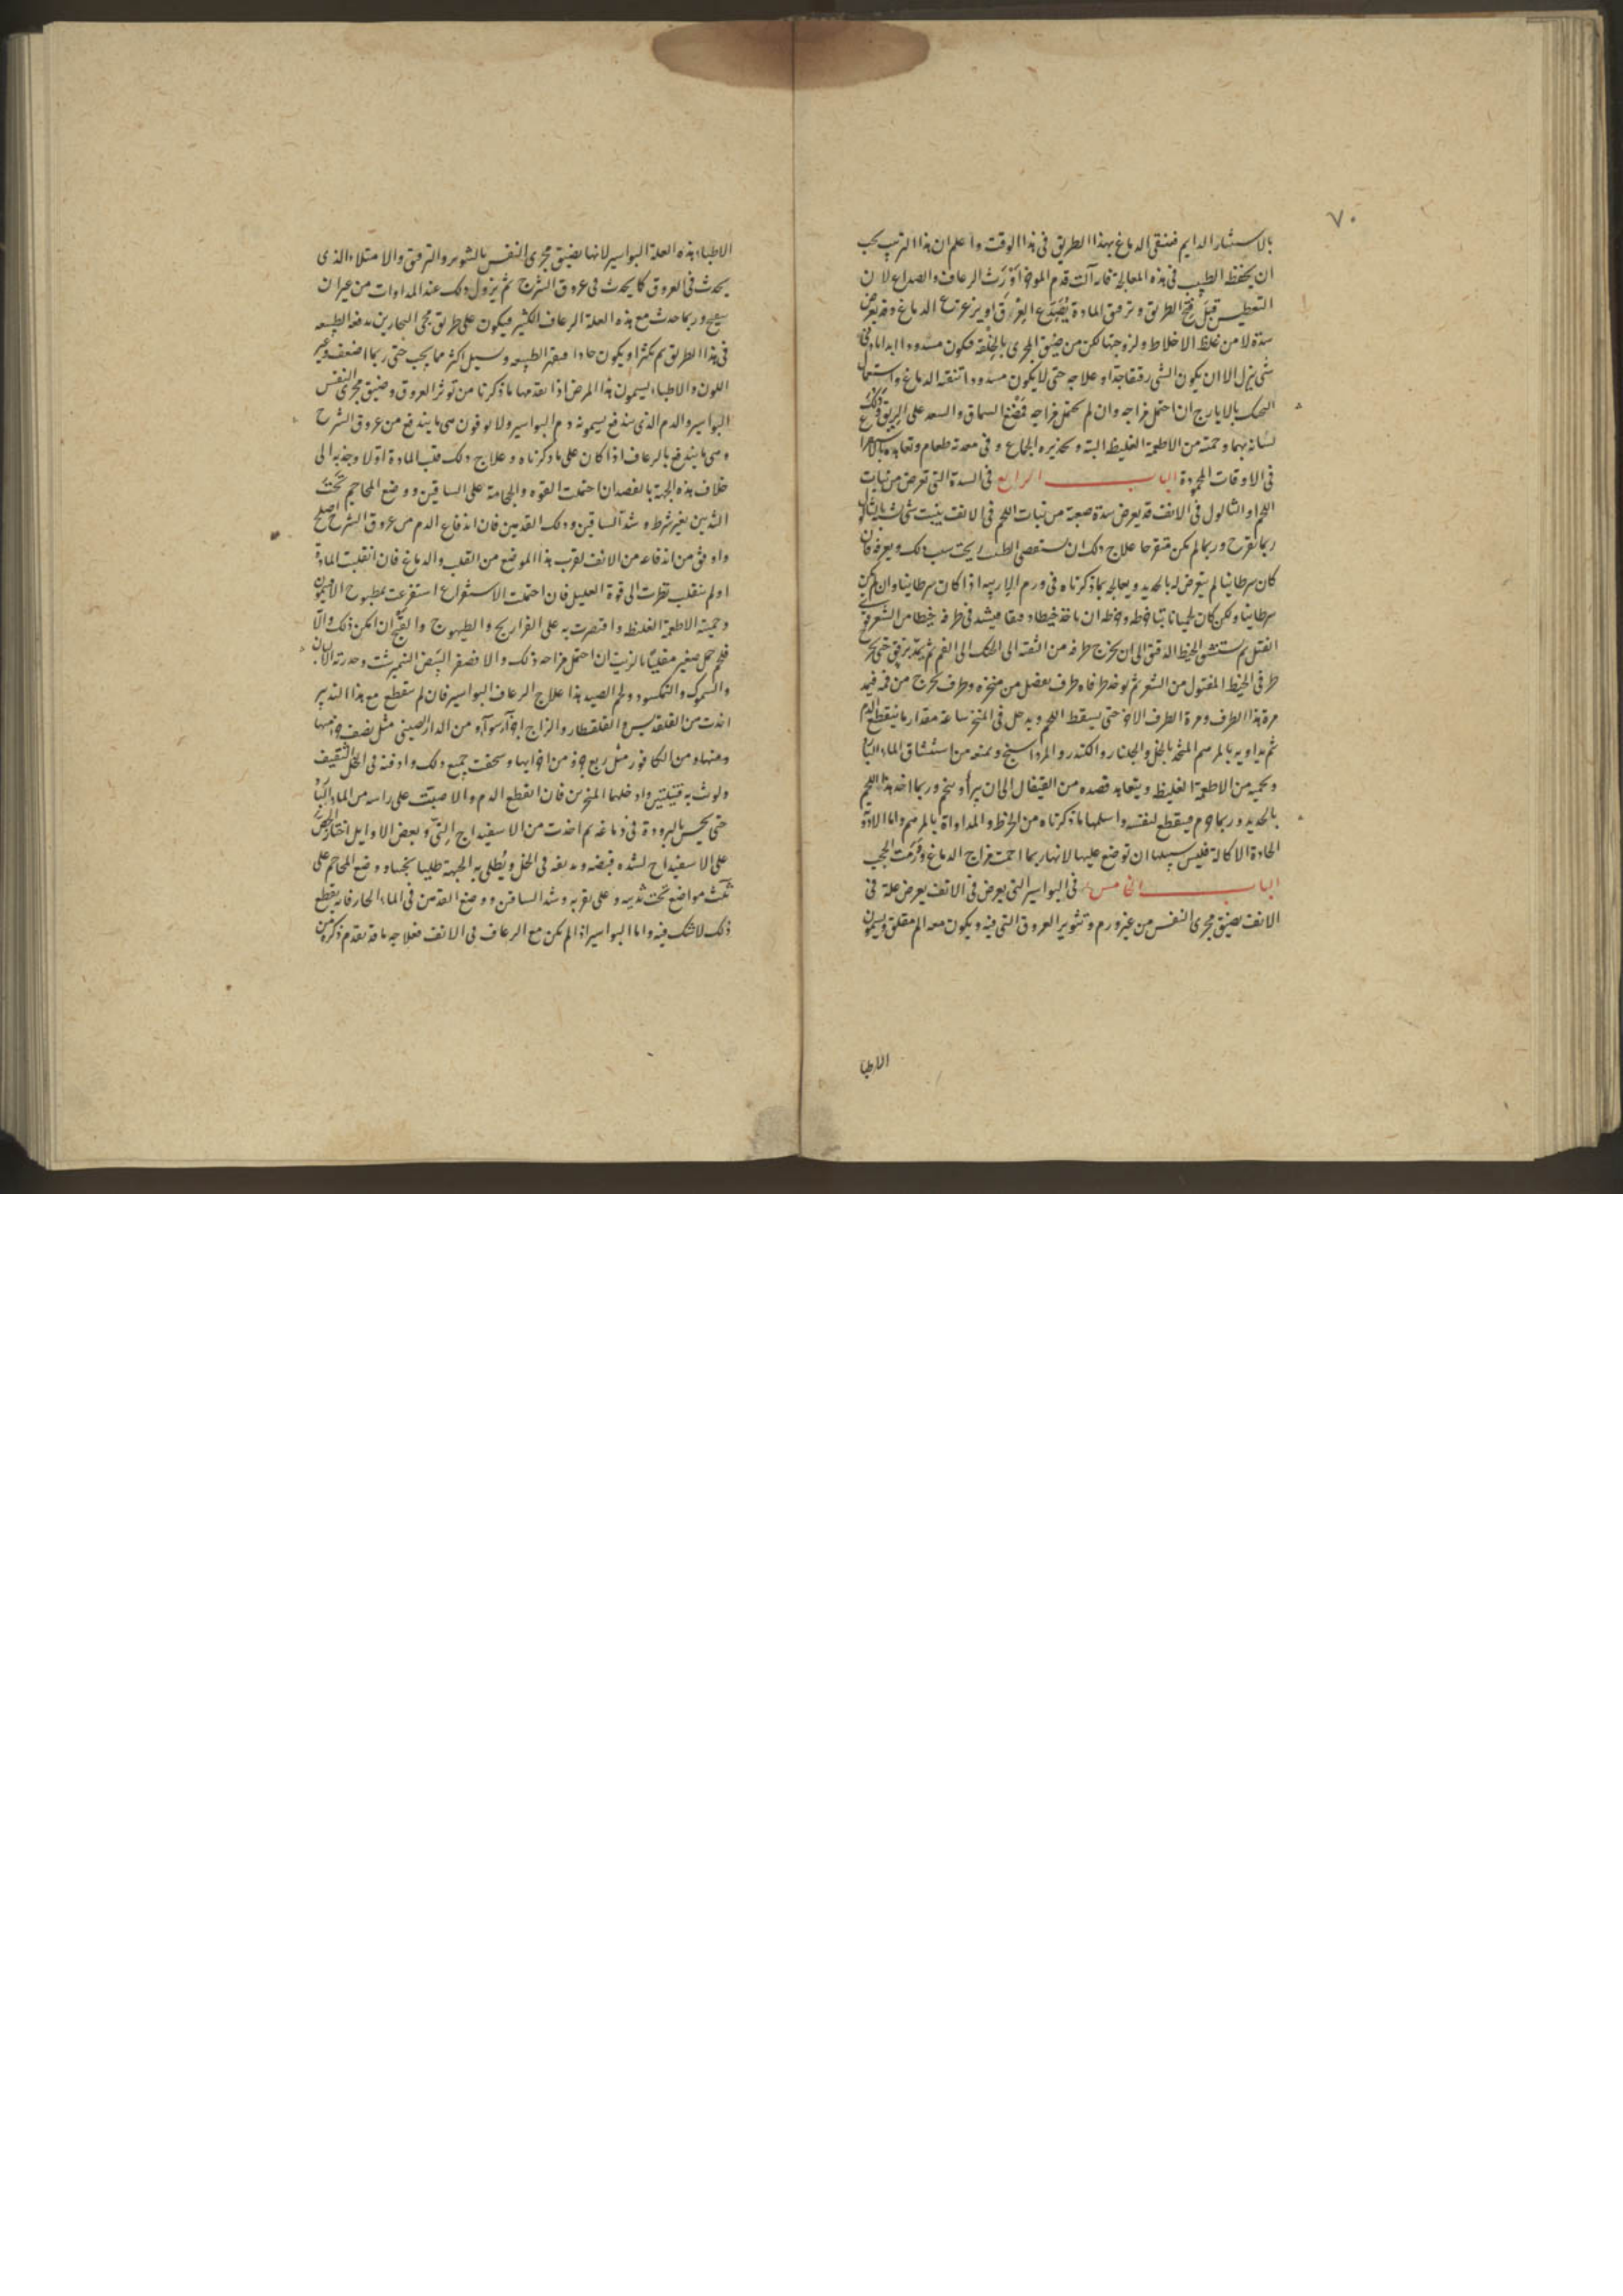 ٧٠
بالاستنثار الدايم فينقى الدماغ بهذا الطريق فى هذا الوقت واعلم ان هذا الترتيب يجب
ان يحفظ الطبيب فى هذه المعالجة فانه الت قدم الموخر اورث الرعاف والصداع لان
التعطيس قبل فتح الطريق وترقيق المادة يصدع العرق او يزعزع الدماغ وقد يعرض
سدة لا من غلظ الاخلاط ولزوجتها لكن من ضيق المجرى بالخلقة فيكون مسدودا ابدا
شى ينزل الا ان يكون الشى رقيقا جدا وعلاجه حتى لا يكون مسدودا تنقية الدماغ واستعمال
بالايارج ان احتمل مزاجه وان لم يحتمل مزاجه فمضغ السماق والسعد على الريق
لسانه بهما وحميته من الاطعمة الغليظة البتة وتحذيره الجماع وفى معدته طعام
فى الاوقات المحمودة الباب الرابع فى السدة التى تعرض من نبات
اللحم او الثالول فى الانف قد يعرض سدة صعبة من نبات اللحم فى الانف ينبت شى شبيه بالثالول
ربما تقرح وربما لم يكن متقرحا علاج ذلك ان يستقصى الطبيب بحث سبب ذلك ويعرفه فان
كان سرطانيا لم يتعرض له بالحديد ويعالجه بما ذكرناه فى ورم الاربية اذا كان سرطانيا وان لم يكن
سرطانيا ولكن كان لحميا نابتا فخرطه ان ياخذ خيطا دقيقا فيشد فى طرفه خيطا من الشعر قوى
الفتل ثم يستنشق الخيط الدقيق الى ان يخرج طرفه من الثقبة الى الحنك الى الفم ثم يمده برفق حتى يخرج
طرفى الخيط المفتول من الشعر ثم يوخذ طرفاه طرف يفضل من منخره وطرف يخرج من فمه فيمد
مرة هذا الطرف ومرة الطرف الاخر حتى يسقط اللحم ويدخل فى المنخر ساعة مقدار ما ينقطع الدم
ثم يداويه بالمرهم المتخذ بالخل والجلنار والكندر والمرداسنج ويمنعه من استنشاق الماء البارد
ويحميه من الاطعمة الغليظة ويتعاهد فصده من القيفال الى ان يبرأ وربما اخذ هذا اللحم
بالحديد وربما فينقطع لنفسه واسلمها ما ذكرناه من الخرط والمداواة بالمرهم واما الادوية
الحادة الاكالة فليس سبيلها ان توضع عليها لانها ربما احمت مزاج الدماغ وورمت الحجب
الباب الخامس فى البواسير التى يعرض فى الانف يعرض علة فى
الانف يضيق مجرى النفس من غير ورم وتثوير العروق التى فيه ويكون معه الم مقلق ويسمون
الاطبا
الاطباء هذه العلة البواسير لانها يضيق مجرى النفس بالتثوير والترقيق والامتلاء الذى
يحدث فى العروق كما يحدث فى عروق الشرج ثم يزول ذلك عند المداوات من غير ان
وربما حدث مع هذه العلة الرعاف الكثير فيكون على طريق مجى البحارين يدفعه الطبيعة
فى هذا الطريق ثم يكثر او يكون حادا فيقهر الطبيعة ويسيل اكثر مما يجب حتى ربما اضعف وغير
اللون والاطباء يسمون هذا المرض اذا تقدمها ما ذكرنا من توثر العروق وضيق مجرى النفس
البواسير والدم الذى يندفع يسمونه دم البواسير ولا يفرقون بين ما يندفع من عروق الشرج
وبين ما يندفع بالرعاف اذا كان على ما ذكرناه وعلاج ذلك قلب المادة اولا وجذبه الى
خلاف هذه الجهة بالفصد ان احتملت القوه والحجامة على الساقين ووضع المحاجم تحت
الثديين بغير شرط وشد الساقين ودلك القدمين فان اندفاع الدم من عروق الشرج اصلح
واوفق من اندفاعه من الانف لقرب هذا الموضع من القلب والدماغ فان انقلبت المادة
او لم ينقلب نظرت الى قوة العليل فان احتملت الاستفراغ استفرغت بمطبوخ الافتيمون
وحميته الاطعمة الغليظة واقتصرت به على الفراريج والطيهوج والقبج ان امكن ذلك والا
فلحم حمل صغير مقليا بالزيت ان احتمل مزاجه ذلك والا فصفر البيض النيمرشت وحذرته الالبان
والسموك والنمكسود ولحم الصيد هذا علاج الرعاف البواسير فان لم ينقطع مع هذا التدبير
اخذت من القلقديس والقلقطار والزاج اجزآ سوآء ومن الدار صينى مثل نصف جزء منها
ومن الكافور مثل ربع جزء من اجزايها وسحقت جميع ذلك وادفته فى الخل الثقيف
ولوثت به فتيلتين وادخلهما المنخرين فان انقطع الدم والا صببت على راسه من الماء البارد
حتى يحس بالبرودة فى دماغه ثم اخذت من الاسفيداج النى وبعض الاوايل اختار الجص
على الاسفيداج لشدة قبضه وتديفه فى الخل ويطلى به الجبهة طليا ثخينا ووضع المحاجم على
ثلث مواضع تحت ثدييه وعلى وشد الساقين ووضع القدمين فى الماء الحار فانه يقطع
ذلك لاشك فيه واما البواسير اذا لم يكن مع الرعاف فى الانف فعلاجه ما قد تقدم ذكره من